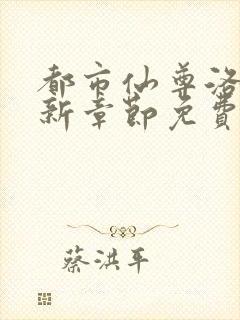 都市仙尊洛
新章節免費
蔡洪平